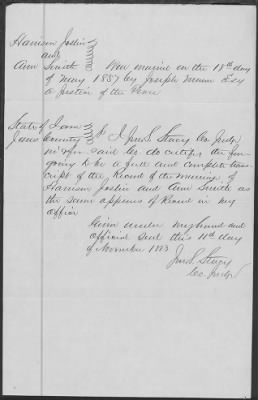 Harrison Joslin
and
Ann Smith Were married on the 18th day
of May 1857 by Joseph Mann Esq
a Justice of the Peace
State of Iowa
Jones County ss I Jno S. Stacy Co. Judge
in &for said Co. do certify the fore
going to be a full and complete trans
cript of the Record of the marriage of
Harrison Joslin and Ann Smith as
the same appears of Record in my
office
Given under my hand and
official seal this 11th day
of November 1863
Jno S. Stacy
Co. Judge